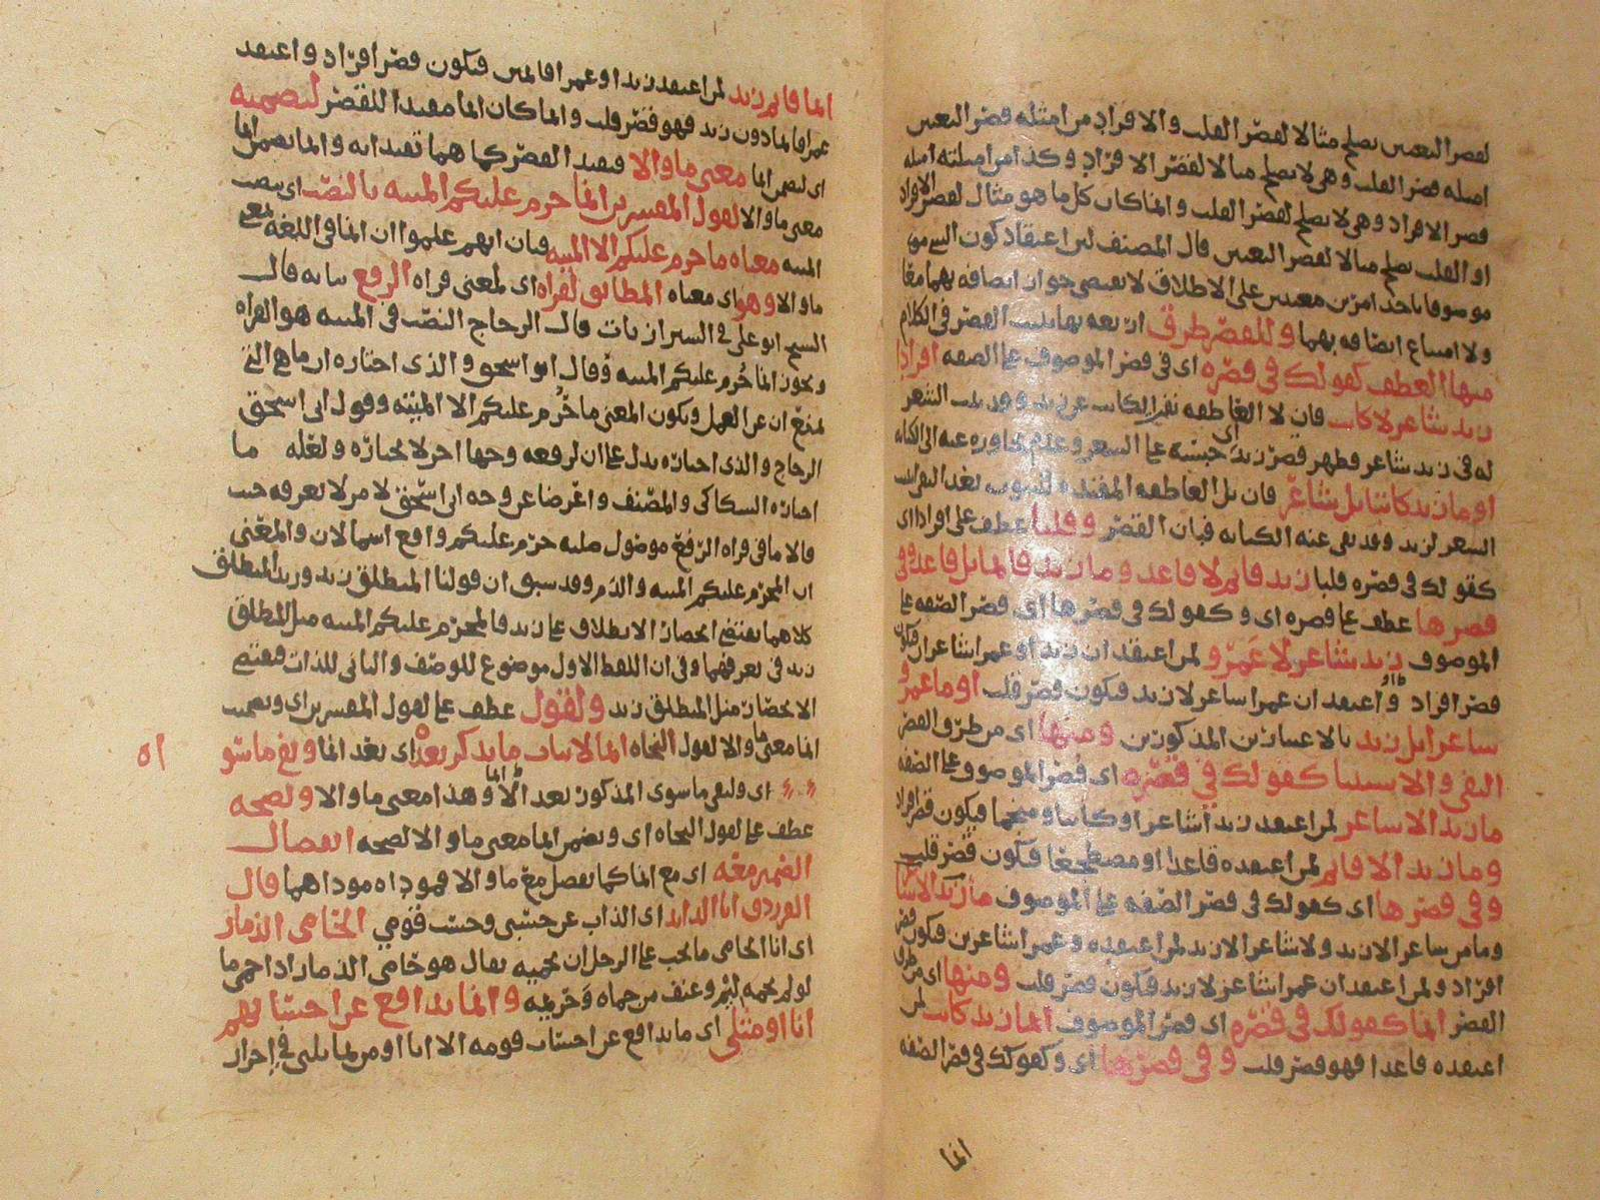 لقصر التعيين يصلح مثالا لقصر القلب والافراد من امثله قصر التعيين
امثله قصر القلب وهى لا يصلح مثالا لقصر الافراد وكذا من امثلته امثله
قصر الافراد وهى لا يصلح لقصر القلب وانما كان كل ما هو مثال لقصر الافراد
او القلب يصلح مثالا لقصر التعيين قال المصنف لان اعتقاد كون الشى
موصوفا باحد امرين معينين على الاطلاق لا يقتضى جواز اتصافه بهما معا
ولا امتناع اتصافه بهما وللقصر طرق اربعه بها يثبت القصر فى الكلام
منها العطف كقولك فى قصره اى فى قصر الموصوف على الصفه افرادا
زيد شاعر لا كاتب فان لا العاطفه نفى الكاتب عن زيد وقد ثبت الشعر
له فى زيد شاعر فظهر قصر زيد اى حبسه على الشعر وعدم تجاوزه عنه الى الكتابه
او ما زيد كاتبا بل شاعر فان بل العاطفه المفيده للثبوت بعد النفى اثبت
الشعر لزيد وقد نفى عنه الكتابه فبان القصر وقلبا عطف على افرادا اى
كقولك فى قصره قلبا زيد قائم لا قاعد وما زيد قائما بل قاعد وفى
قصرها عطف على قصره اى وكقولك فى قصرها اى قصر الصفه على
الموصوف زيد شاعر لا عمرو لمن اعتقد ان زيدا وعمرا شاعران فيكون
قصر افراد او اعتقد ان عمرا شاعر لا زيد فيكون قصر قلب او ما عمرو
شاعرا بل زيد بالاعتبارين المذكورين ومنها اى من طرق القصر
النفى والاستثنا كقولك فى قصره اى قصر الموصوف على الصفه
ما زيد الا شاعر لمن اعتقد زيدا شاعرا وكاتبا ومنجما فيكون قصر افراد
وما زيد الا قائم لمن اعتقده قاعدا او مضطجعا فيكون قصر قلب
وفى قصرها اى كقولك فى قصر الصفه على الموصوف ما زيد الا شاعر
وما من شاعر الا زيد ولا شاعر الا زيد لمن اعتقده وعمرا شاعرين فيكون قصر
افراد ولمن اعتقد ان عمرا شاعر لا زيد فيكون قصر قلب ومنها اى من طرق
القصر انما كقولك فى قصره اى قصر الموصوف انما زيد كاتب لمن
اعتقده قاعدا فهو قصر قلب وفى قصرها اى وكقولك فى قصر الصفه
انما
انما قائم زيد لمن اعتقد زيدا وعمرا قائمين فيكون قصر افراد واعتقد
عمرا قائما دون زيد فهو قصر قلب وانما كان انما مفيدا للقصر لتضمنه
اى لتضمن انما معنى ما والا فيفيد القصر كما هما تفيدانه وانما تضمن انما
معنى ما والا لقول المفسرين انما حرم عليكم الميته بالنصب اى بنصب
الميته معناه ما حرم عليكم الا الميته فان انهم علموا ان انما فى اللغه بمعنى
ما والا وهو اى معناه المطابق لقراه اى لمعنى قراه الرفع بيانه قال
الشيخ ابو على فى الشيرازيات قال الزجاج النصب فى الميته هو القراه
ويجوز انما حُرم عليكم الميته وقال ابو اسحق والذى اختاره ان ما هى التى
تمنع ان عن العمل ويكون المعنى ما حُرم عليكم الا الميته وقول ابى اسحق
الزجاج والذى اختاره يدل على ان لرفعه وجها اخر لا يختاره ولعله ما
اختاره السكاكى والمصنف واعرضا عن وجه ابى اسحق لامر لا نعرفه حيث
قالا ما فى قراه الرفع موصول صلته حرم عليكم واقع اسما لان والمعنى
ان المحرم عليكم الميته والدم وقد سبق ان قولنا المنطلق زيد وزيد المنطلق
كلاهما يقتضى انحصار الانطلاق على زيد فالمحرم عليكم الميته مثل المنطلق
زيد فى تعريفهما وفى ان اللفظ الاول موضوع للوصف والثانى للذات فيقتضى
الانحصار مثل المنطلق زيد ولقول عطف على لقول المفسرين اى وتضمنت
انما معنى ما والا لقول النحاه انما لاثبات ما يذكر بعده اى بعد انما ونفى ما سو
اه
اى ولنفى ما سوى المذكور بعد انما وهذا معنى ما والا ولصحه
عطف على لقول النحاه اى وتضمن انما معنى ما والا لصحه انفصال
الضمير معه اى مع انما كما تفصل مع ما والا فمودإه مؤداهما قال
الفرزدق انا الذايد اى الذاب عن حسبى وحسب قومي الحامى الذمار
اى انا الحامى ما يجب على الرجل ان يحميه يقال هو حامى الذمار اذا حمى ما
لو لم يحمه ليم وعنف من حماه وحريمه وانما يدافع عن احسابهم
انا او مثلى اى ما يدافع عن احساب قومه الا انا او من يماثلنى فى احراز